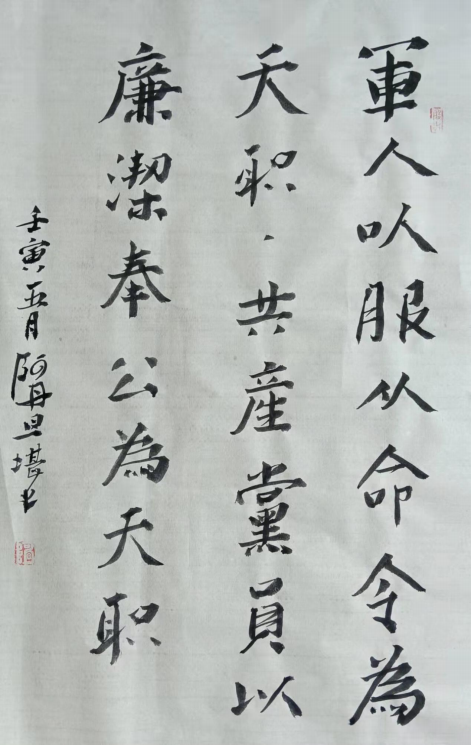 軍人以服从命令為
天职、共産黨員以
廉潔奉公為天职
壬寅五月